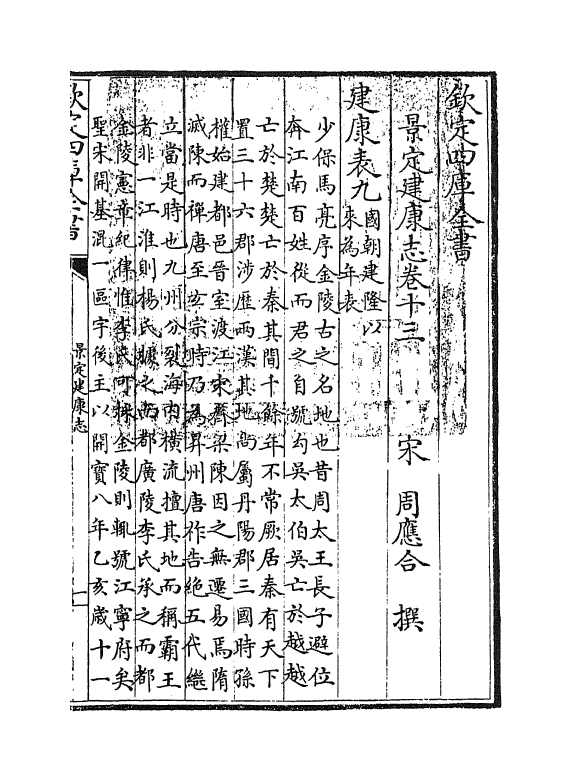 欽定四庫全書
景定建康志卷十三　宋　周應合　撰
建康表九
國朝建隆以
來為年表
少保馬亮序金陵古之名地也昔周太王長子避位
奔江南百姓從而君之自號勾吳太伯吳亡於越越
亡於楚楚亡於秦其間千餘年不常厥居秦有天下
置三十六郡涉歷兩漢其地尚屬丹陽郡三國時孫
權始建都邑晉室渡江宋齊梁陳因之無遷易焉隋
滅陳而禪唐至玄宗時乃為昇州唐祚告絶五代繼
立當是時也九州分裂海内橫流擅其地而稱霸王
者非一江淮則楊氏據之而郡廣陵李氏承之而都
金陵憲章紀律惟李氏可採金陵則輒號江寧府矣
聖宋開基混一區宇後王以開寶八年乙亥歲十一
欽定四庫全書
景定建康志
一